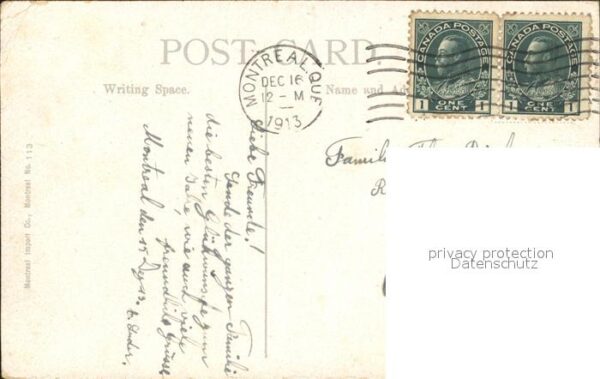 POST CARD.
Writing Space.
Name and Ad
MONTREAL, QUE
DEC 16
12 - M
1913
CANADA POSTAGE
1 ONE CENT 1
CANADA POSTAGE
1 ONE CENT 1
Familie
R
privacy protection
Datenschutz
Liebe Freunde!
Sende der ganzen Familie
die besten Glückwünsche zum
neuen Jahr, wie auch viele
freundliche Grüsse
Montreal den 15 Dez 13.
Montreal Import Co., Montreal No. 113